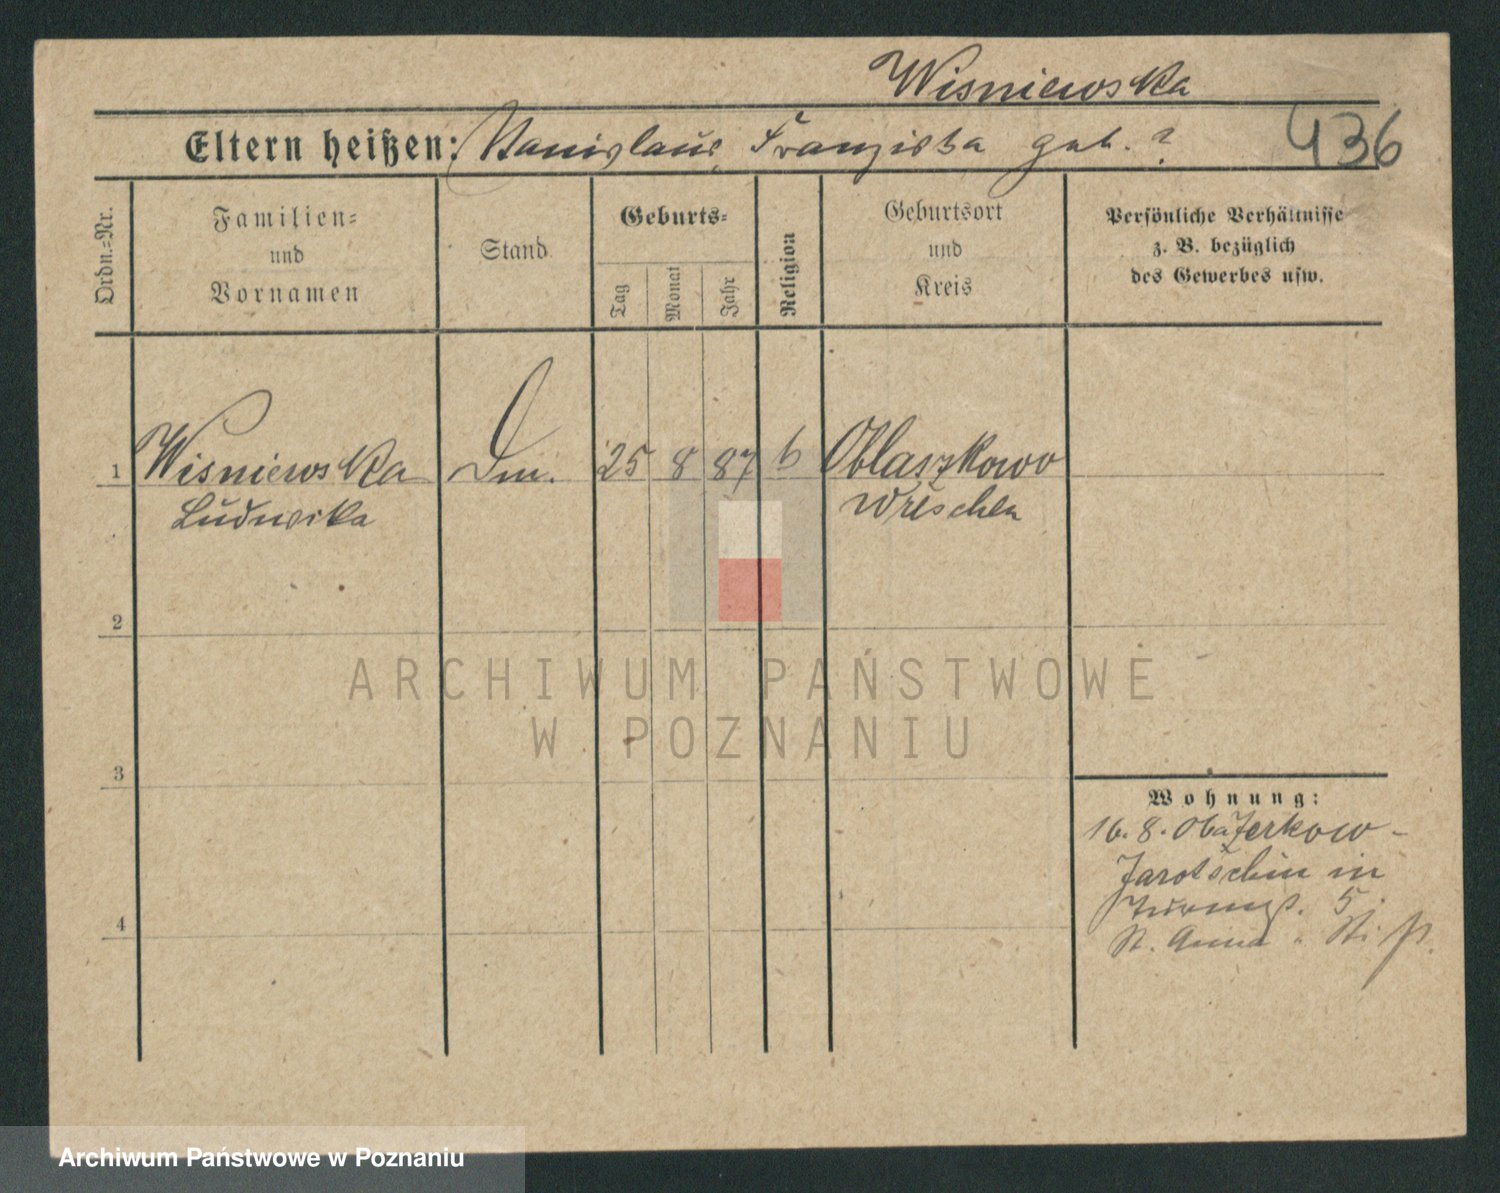 Wisniewska
Eltern heißen: Stanislaus, Franziska geb. ?
436
Ordn.=Nr.
Familien=
und
Vornamen
Stand
Geburts=
Tag
Monat
Jahr
Religion
Geburtsort
und
Kreis
Persönliche Verhältnisse
z. B. bezüglich
des Gewerbes usw.
1 Wisniewska 25 8 87 Oblaszkowo
Ludwika
Wreschen
2
3
4
Wohnung:
16. 8. Zerkow -
Jarotschin in
5.
St. Anna
ARCHIWUM PAŃSTWOWE
W POZNANIU
Archiwum Państwowe w Poznaniu